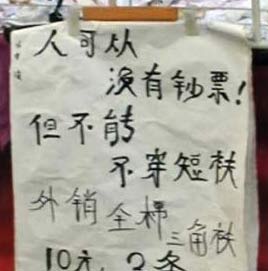 人可从
没有钞票！
但不能
不穿短裤
外销全棉
三角裤
10元 3条